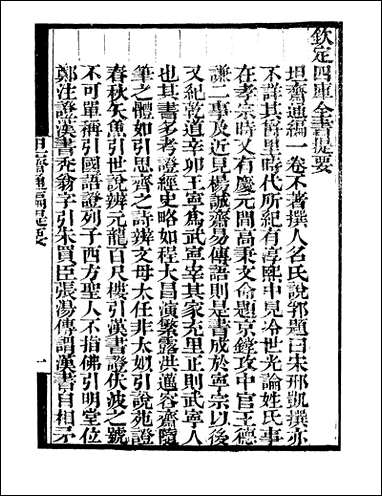 欽定四庫全書提要
坦齋通編一卷不著撰人名氏說郛題曰宋邢凱撰亦
不詳其爵里時代所紀有淳熙中見冷世光論姓氏事
在孝宗時又有慶元間高秉文命題京鏜攻中官王德
謙二事及近見楊誠齋易傳語則是書成於寧宗以後
又紀乾道辛卯王寧為武寧宰其家充里正則武寧人
也其書多考證經史略如程大昌演繁露洪邁容齋隨
筆之體如引思齊之詩辨文母太任非太姒引說苑證
春秋矢魚引世說辨元龍百尺樓引漢書證伏波之號
不可單稱引國語證列子西方聖人不指佛引明堂位
鄭注證漢書禿翁字引朱買臣張湯傳謂漢書自相矛
坦齋通編提要
一